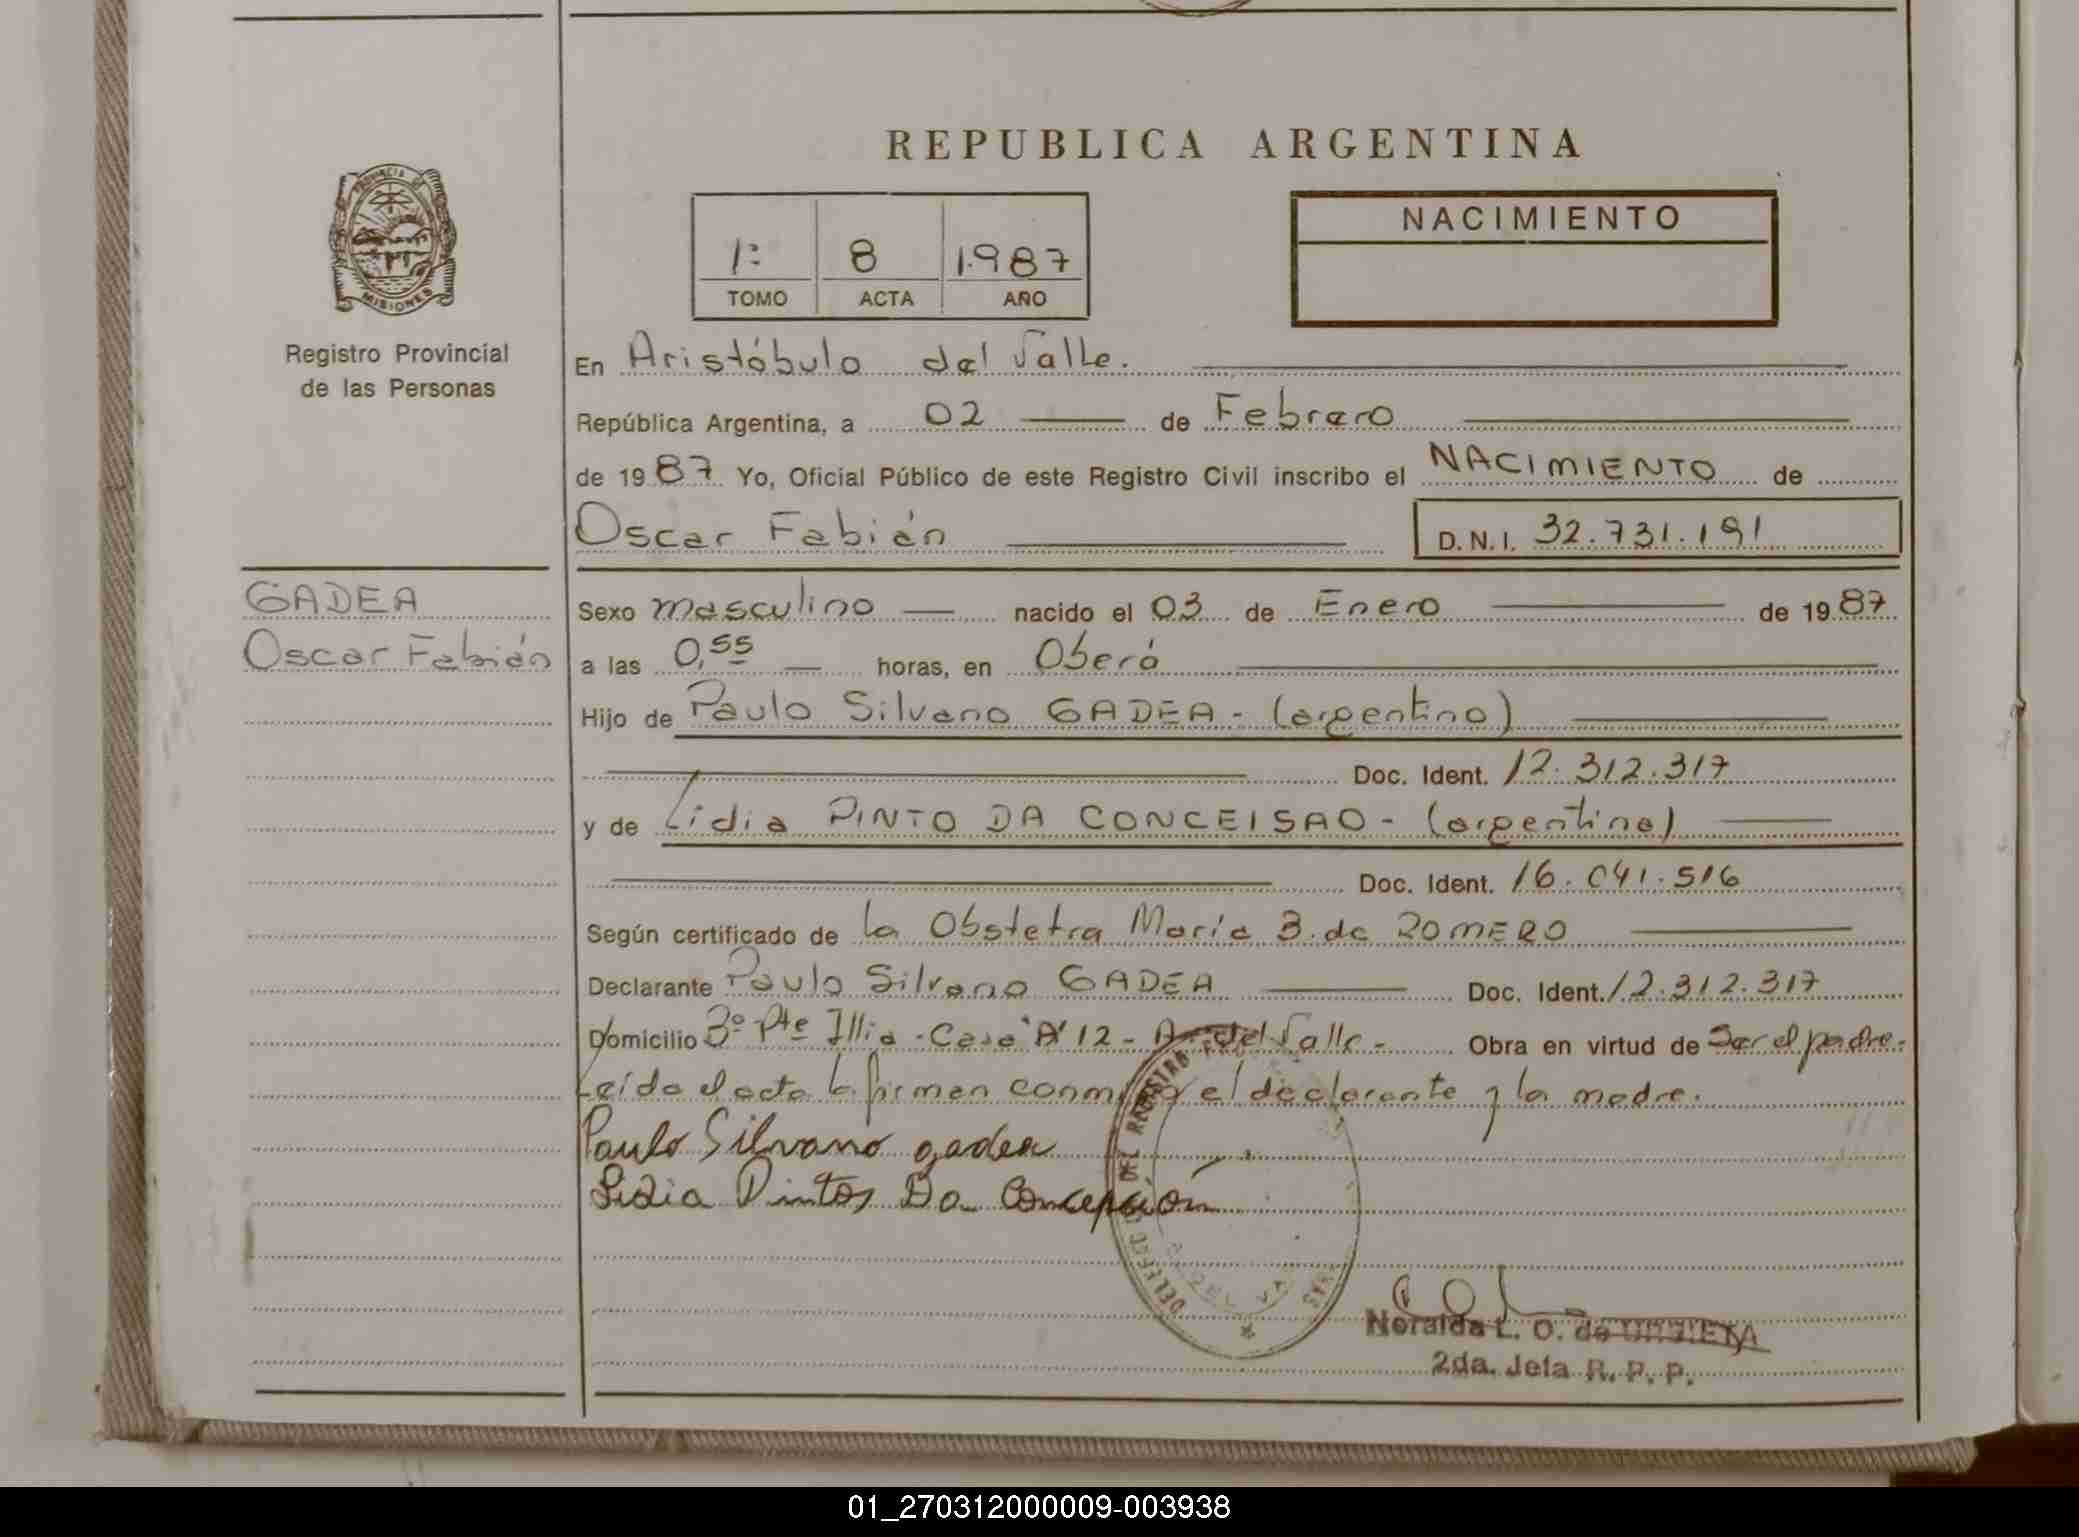 REPUBLICA ARGENTINA
PROVINCIA DE
MISIONES
Registro Provincial
de las Personas
1:
8
1.987
TOMO
ACTA
AÑO
NACIMIENTO
En Aristóbulo del Valle.
República Argentina, a 02 de Febrero
de 1987 Yo, Oficial Público de este Registro Civil inscribo el NACIMIENTO de
Oscar Fabián
D.N.I. 32.731.191
GADEA
Oscar Fabián
Sexo masculino nacido el 03 de Enero de 1987
a las 0,55 horas, en Oberá
Hijo de Paulo Silvano GADEA - (argentino)
Doc. Ident. 12.312.317
y de Lidia PINTO DA CONCEISAO - (argentina)
Doc. Ident. 16.041.516
Según certificado de la Obstetra María B. de ROMERO
Declarante Paulo Silvano GADEA Doc. Ident. 12.312.317
Domicilio Bº Pte Illia - Casa "A" 12 - A. del Valle - Obra en virtud de Ser el padre.
Leída el acta la firman conmigo el declarante y la madre.
Paulo Silvano gadea
Lidia Pintos Da Concepción
DEL REGISTRO
Noralda L. O. de
2da. Jefa R. P. P.
01_270312000009-003938